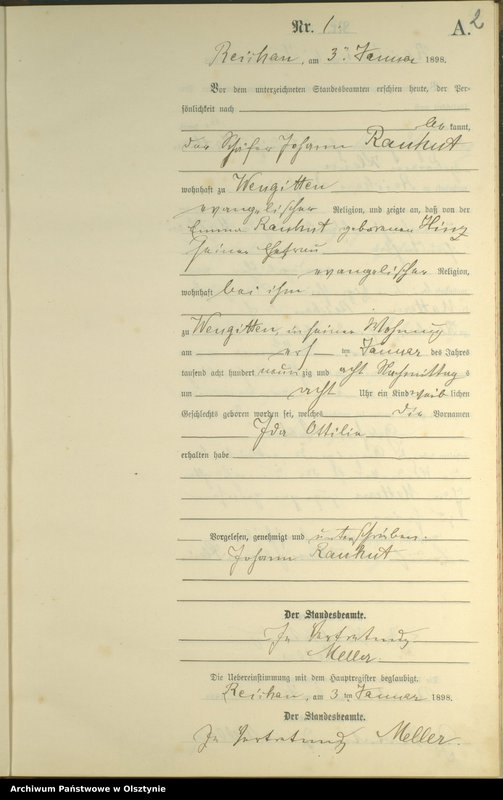 2
Nr. 1. A.
Reichau, am 3ten Januar 1898.
Vor dem unterzeichneten Standesbeamten erschien heute, der Per-
sönlichkeit nach
be kannt,
der Schäfer Johann Rauhut
wohnhaft zu Wengitten
evangelischer Religion, und zeigte an, daß von der
Emma Rauhut geborenen Hinz
seiner Ehefrau
evangelischer Religion,
wohnhaft bei ihm
zu Wengitten, in seiner Wohnung
am ten Januar des Jahres
tausend acht hundert neun zig und acht Nachmittag s
um acht Uhr ein Kind weib lichen
Geschlechts geboren worden sei, welches die Vornamen
Ida Ottilie
erhalten habe
Vorgelesen, genehmigt und unterschrieben.
Johann Rauhut
Der Standesbeamte.
In Vertretung
Meller.
Die Uebereinstimmung mit dem Hauptregister beglaubigt.
Reichau, am 3 ten Januar 1898.
Der Standesbeamte.
In Vertretung Meller.
Archiwum Państwowe w Olsztynie